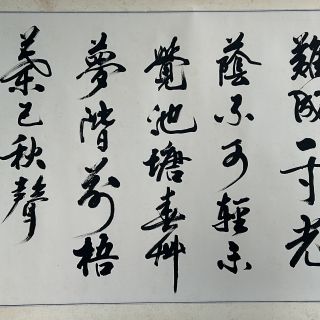 難成一寸光
蔭不可輕未
覺池塘春艸
夢階前梧
葉已秋聲